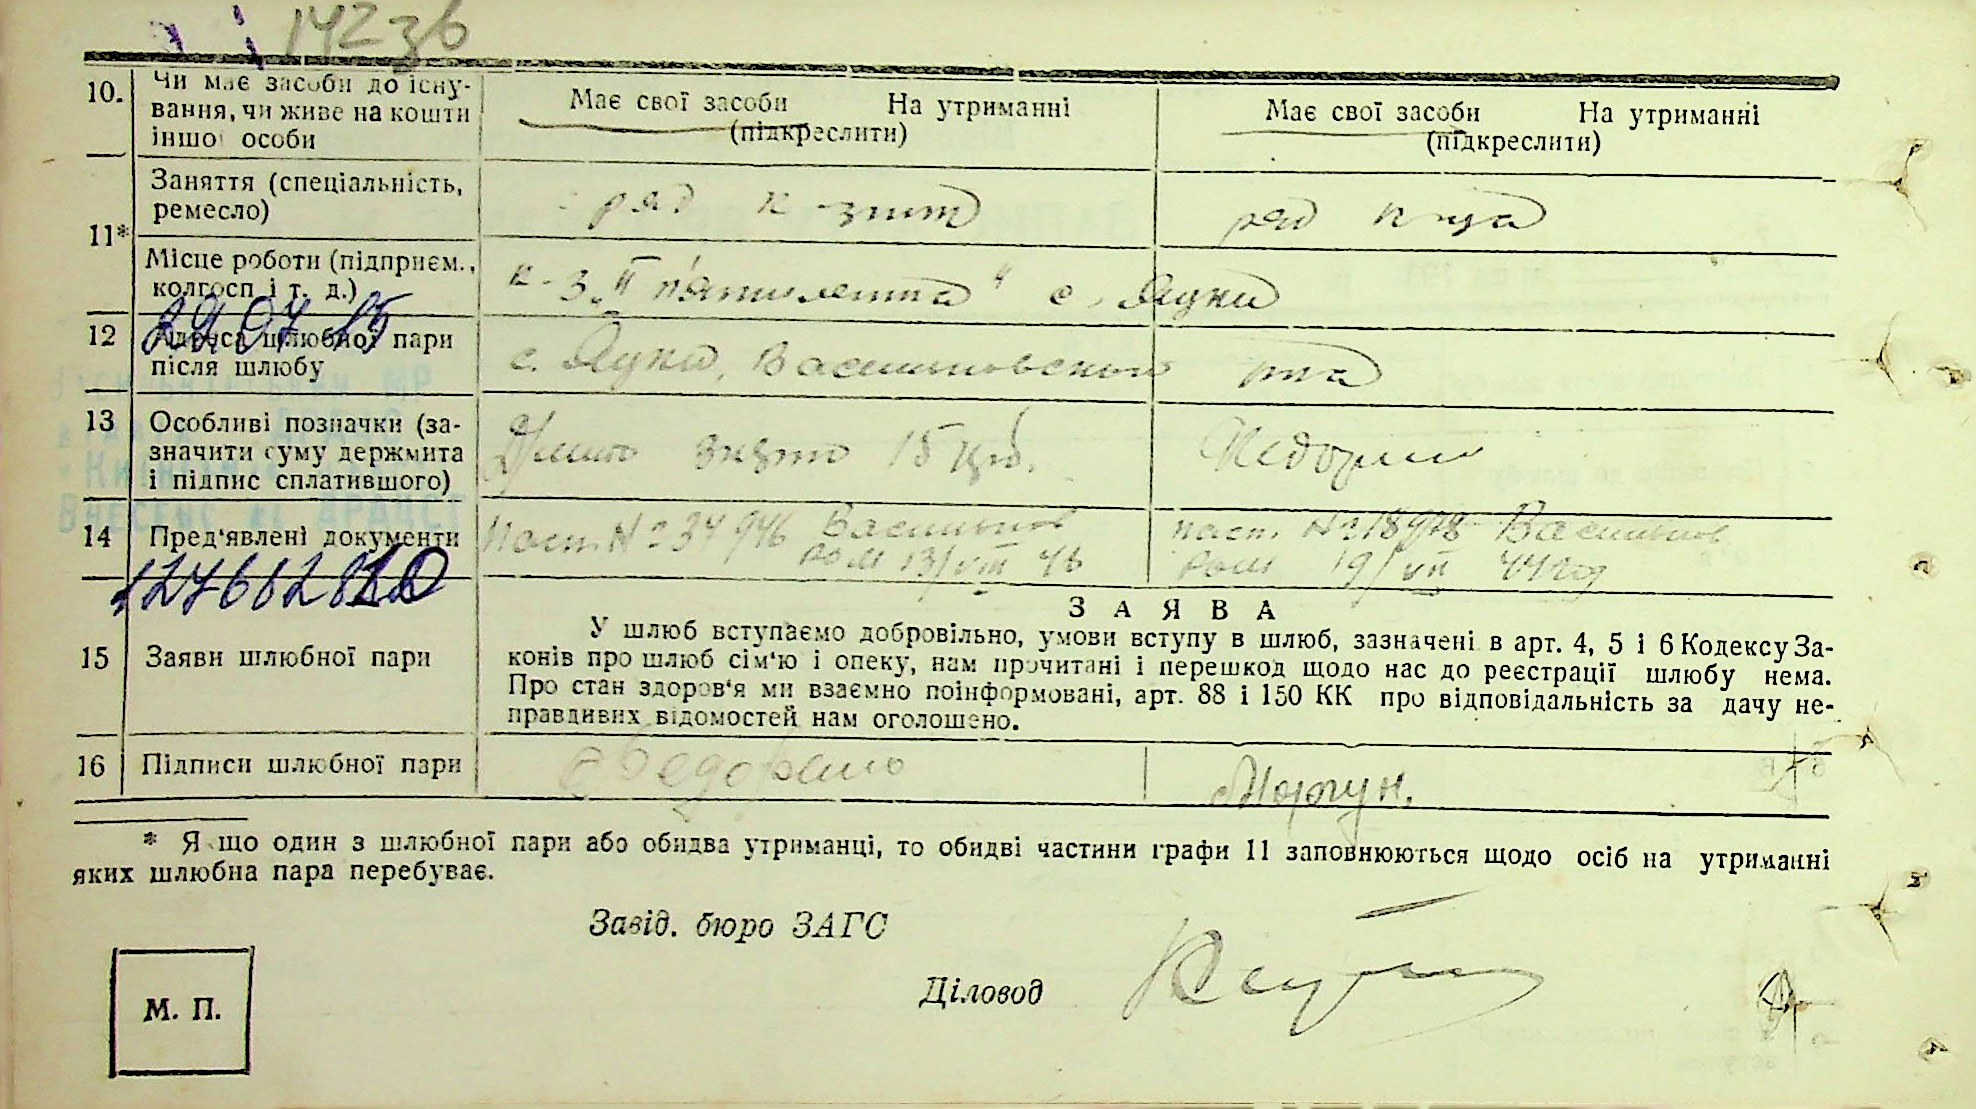 142зв
10. Чи має засоби до існу-
вання, чи живе на кошти
іншої особи
Має свої засоби На утриманні
(підкреслити)
Має свої засоби На утриманні
(підкреслити)
11*
Заняття (спеціальність,
ремесло)
ряд к-зник
ряд к-ца
Місце роботи (підприєм.,
колгосп і т. д.)
к-з. "П'ятилетка" с. Яцки
29 07 15
12 Адреса шлюбної пари
після шлюбу
с. Яцки, Васильковський р-на
13 Особливі позначки (за-
значити суму держмита
і підпис сплатившого)
знято 15 крб.
14 Пред'явлені документи
Пасп. № 34946 Васильков
РОМ 13/VIII 46
пасп. № 18978 Васильков
ром 19/VII 44 год
15 Заяви шлюбної пари
ЗАЯВА
У шлюб вступаємо добровільно, умови вступу в шлюб, зазначені в арт. 4, 5 і 6 Кодексу За-
конів про шлюб сім'ю і опеку, нам прочитані і перешкод щодо нас до реєстрації шлюбу нема.
Про стан здоров'я ми взаємно поінформовані, арт. 88 і 150 КК про відповідальність за дачу не-
правдивих відомостей нам оголошено.
16 Підписи шлюбної пари
Моргун.
* Якщо один з шлюбної пари або обидва утриманці, то обидві частини графи 11 заповнюються щодо осіб на утриманні
яких шлюбна пара перебуває.
Завід. бюро ЗАГС
Діловод
М. П.